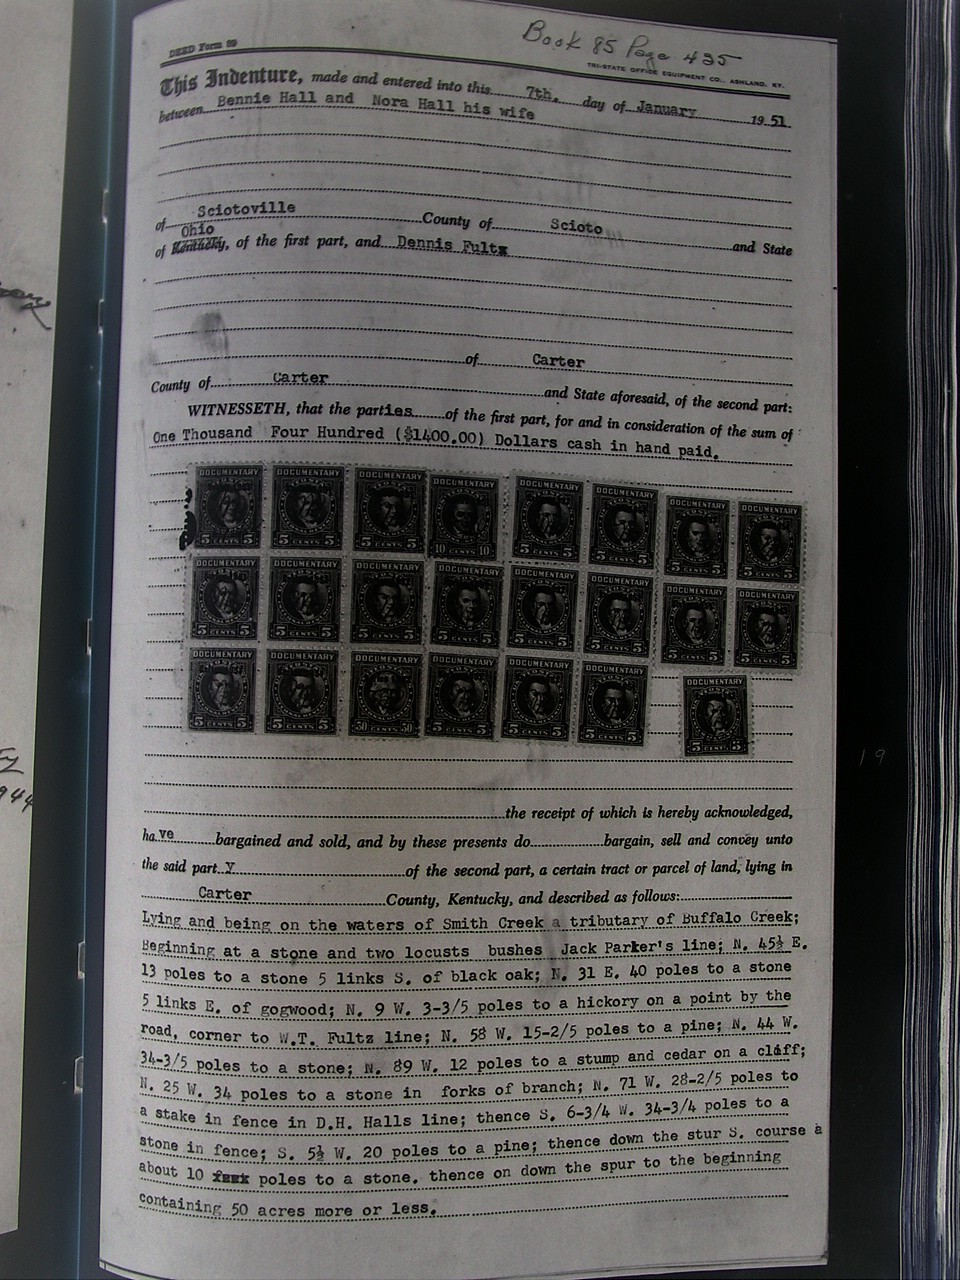 Book 85 Page 435
DEED Form 89
TRI-STATE OFFICE EQUIPMENT CO., ASHLAND, KY.
This Indenture, made and entered into this 7th. day of January 1951
between Bennie Hall and Nora Hall his wife
of Sciotoville County of Scioto and State
Ohio
of Kentucky, of the first part, and Dennis Fultz
of Carter
County of Carter and State aforesaid, of the second part:
WITNESSETH, that the parties of the first part, for and in consideration of the sum of
One Thousand Four Hundred ($1400.00) Dollars cash in hand paid.
DOCUMENTARY DOCUMENTARY DOCUMENTARY DOCUMENTARY DOCUMENTARY DOCUMENTARY DOCUMENTARY DOCUMENTARY
5 CENTS 5 5 CENTS 5 5 CENTS 5 10 CENTS 10 5 CENTS 5 5 CENTS 5 5 CENTS 5 5 CENTS 5
DOCUMENTARY DOCUMENTARY DOCUMENTARY DOCUMENTARY DOCUMENTARY DOCUMENTARY DOCUMENTARY DOCUMENTARY
5 CENTS 5 5 CENTS 5 5 CENTS 5 5 CENTS 5 5 CENTS 5 5 CENTS 5 5 CENTS 5 5 CENTS 5
DOCUMENTARY DOCUMENTARY DOCUMENTARY DOCUMENTARY DOCUMENTARY DOCUMENTARY DOCUMENTARY
5 CENTS 5 5 CENTS 5 CENTS 5 CENTS 5 5 CENTS 5 5 CENTS 5 5 CENTS 5
19
the receipt of which is hereby acknowledged,
944
have bargained and sold, and by these presents do bargain, sell and convey unto
the said party of the second part, a certain tract or parcel of land, lying in
Carter County, Kentucky, and described as follows:
Lying and being on the waters of Smith Creek a tributary of Buffalo Creek;
Beginning at a stone and two locusts bushes Jack Parker's line; N. 45½ E.
13 poles to a stone 5 links S. of black oak; N. 31 E. 40 poles to a stone
5 links E. of gogwood; N. 9 W. 3-3/5 poles to a hickory on a point by the
road, corner to W.T. Fultz line; N. 58 W. 15-2/5 poles to a pine; N. 44 W.
34-3/5 poles to a stone; N. 89 W. 12 poles to a stump and cedar on a cliff;
N. 25 W. 34 poles to a stone in forks of branch; N. 71 W. 28-2/5 poles to
a stake in fence in D.H. Halls line; thence S. 6-3/4 W. 34-3/4 poles to a
stone in fence; S. 5½ W. 20 poles to a pine; thence down the stur S. course a
about 10 poles to a stone. thence on down the spur to the beginning
containing 50 acres more or less.